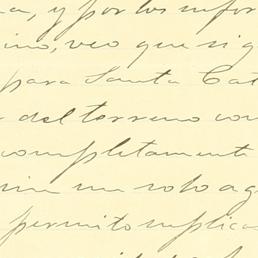 , y por los infor
ino, veo que sig
para Santa Cat
del terreno con
completamente
un solo ag
permito suplica